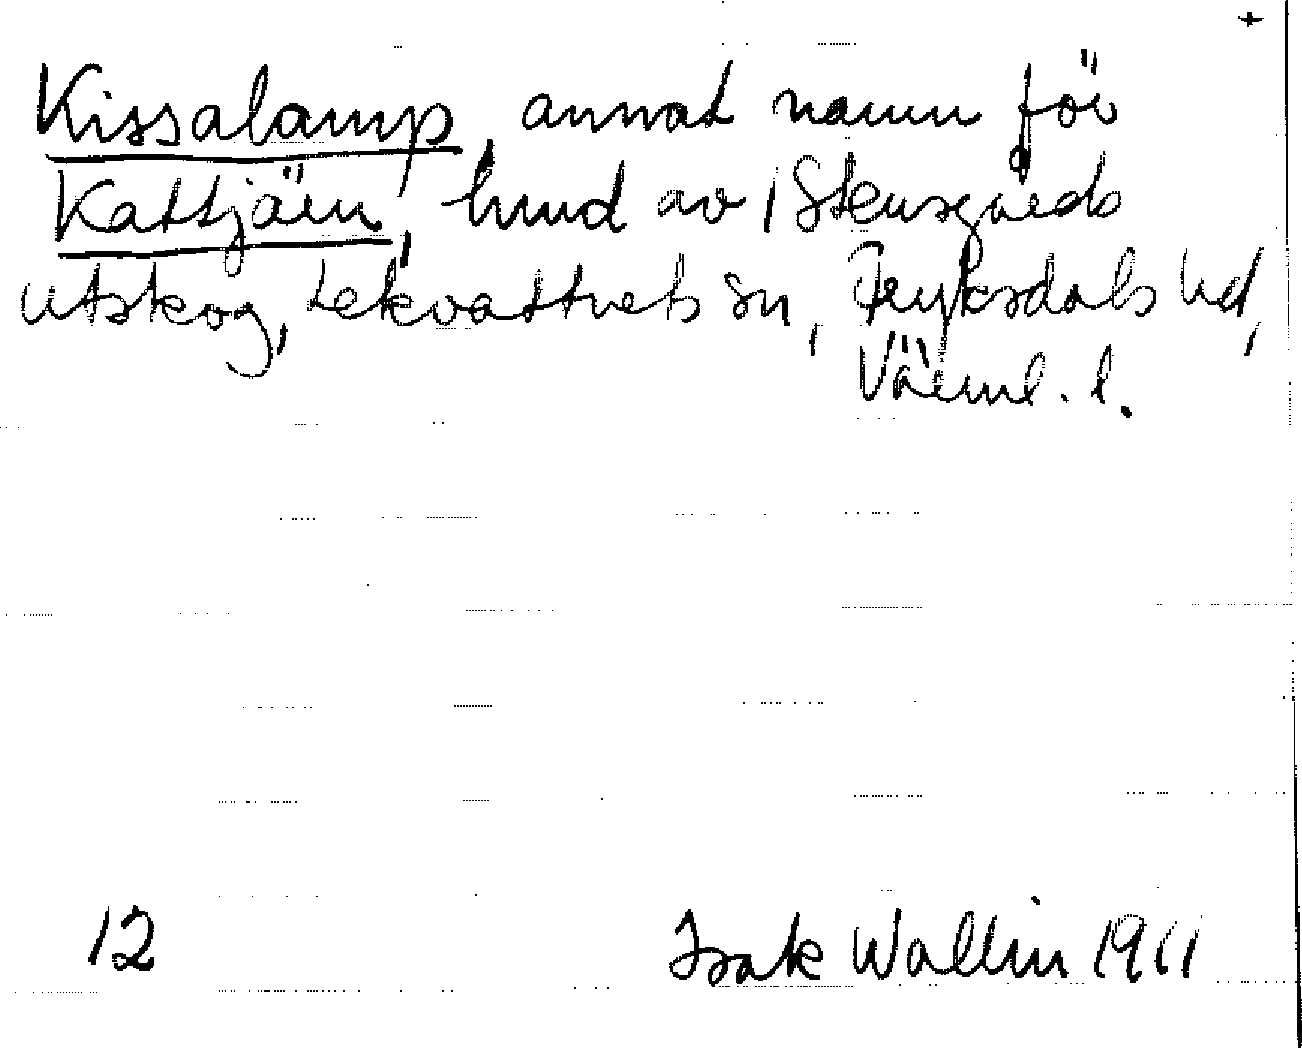 +
Kissalamp, annat namn för
Kattjärn, hmd av / Stensgårds
utskog, Lekvattnets sn, Fryksdals hd,
Värml. l.
12 Isak Wallin 1911